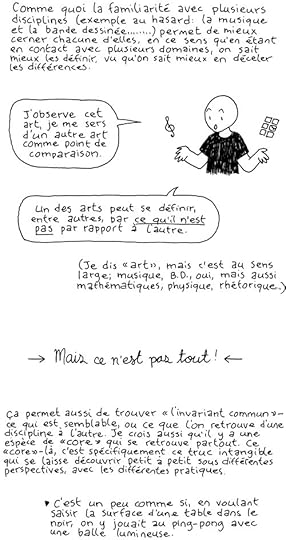 Comme quoi la familiarité avec plusieurs
disciplines (exemple au hasard: la musique
et la bande dessinée........) permet de mieux
cerner chacune d'elles, en ce sens qu'en étant
en contact avec plusieurs domaines, on sait
mieux les définir, vu qu'on sait mieux en déceler
les différences.
J'observe cet
art, je me sers
d'un autre art
comme point de
comparaison.
Un des arts peut se définir,
entre autres, par ce qu'il n'est
pas par rapport à l'autre.
(Je dis «art», mais c'est au sens
large; musique, B.D., oui, mais aussi
mathématiques, physique, rhétorique..)
→ Mais ce n'est pas tout! ←
Ça permet aussi de trouver «l'invariant commun»-
ce qui est semblable, ou ce que l'on retrouve d'une
discipline à l'autre. Je crois aussi qu'il y a une
espèce de «core» qui se retrouve partout. Ce
«core»-là, c'est spécifiquement ce truc intangible
qui se laisse découvrir petit à petit sous différentes
perspectives, avec les différentes pratiques.
* C'est un peu comme si, en voulant
saisir la surface d'une table dans le
noir, on y jouait au ping-pong avec
une balle lumineuse.